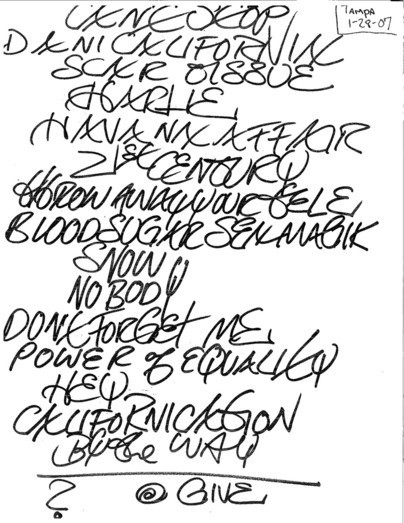 CAN'T STOP
TAMPA
1-29-07
DANI CALIFORNIA
SCAR TISSUE
CHARLIE
HAVANA AFFAIR
21st CENTURY
THROW AWAY YOUR TELE
BLOODSUGARSEXMAGIK
SNOW
NOBODY
DON'T FORGET ME
POWER of EQUALITY
HEY
CALIFORNICATION
By the WAY
? @ GIVE